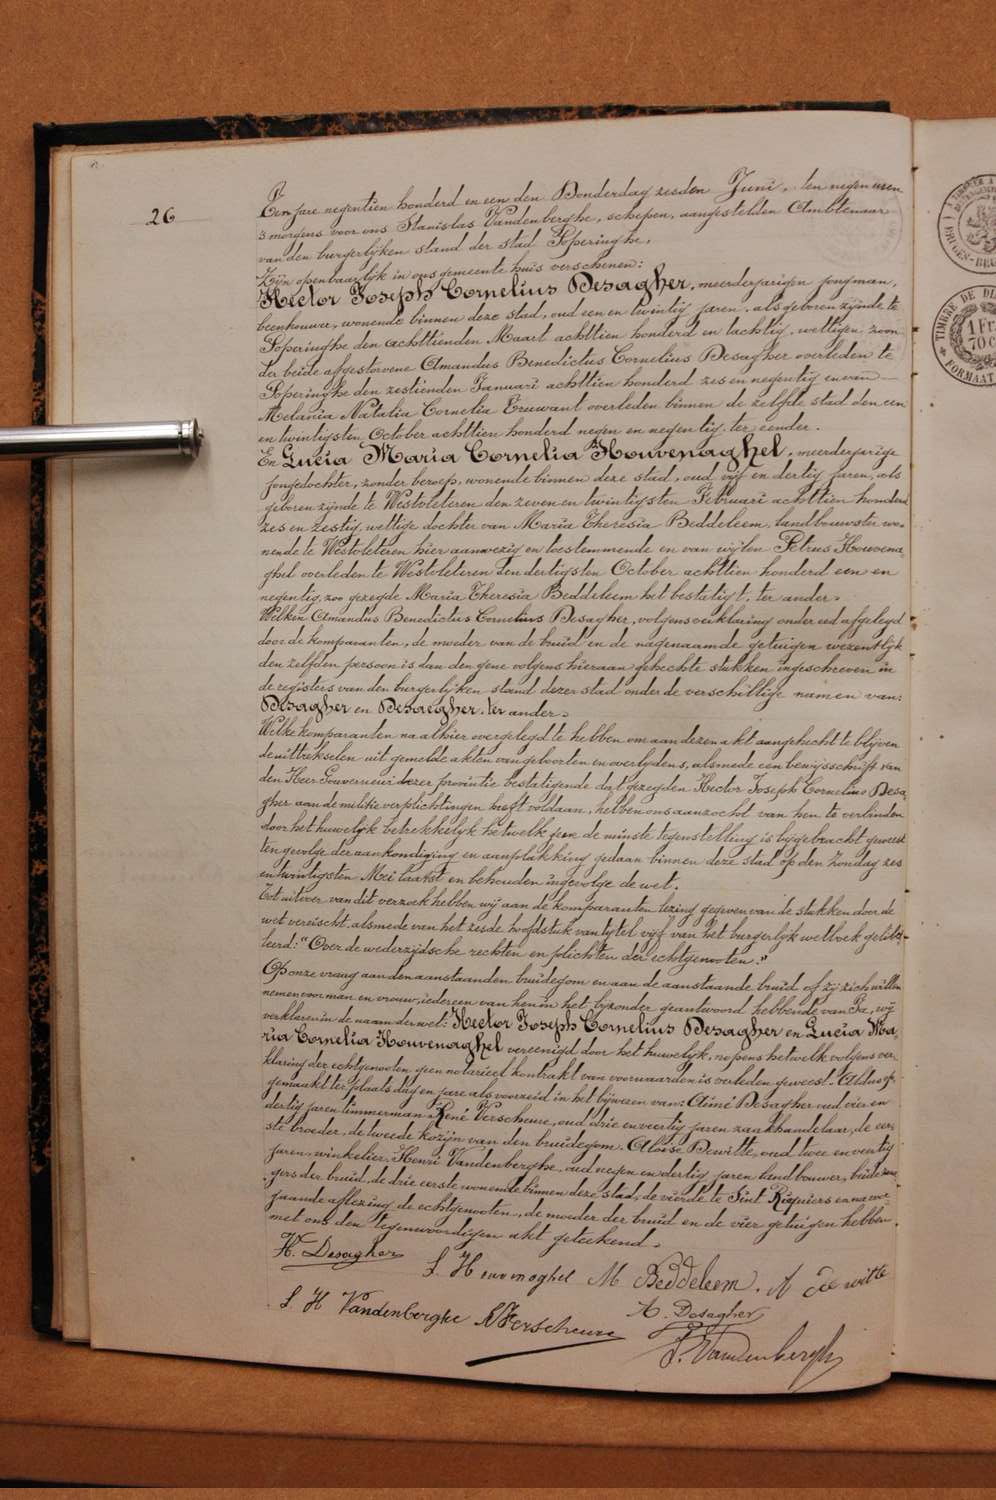 26
Ten jare negentien honderd en een den Donderdag zesden Juni, ten negen uren
's morgens voor ons Stanislas Vandenberghe, schepen, aangestelden Ambtenaar
van den burgerlijken stand der stad Poperinghe,
Zijn openbaarlijk in ons gemeente huis verschenen:
Hector Joseph Cornelius Desagher, meerderjarigen jongman,
beenhouwer, wonende binnen deze stad, oud een en twintig jaren, als geboren zijnde te
Poperinghe den achttienden Maart achttien honderd en tachtig, wettigen zoon
der beide afgestorvene Amandus Benedictus Cornelius Desagher overleden te
Poperinghe den zestienden Januari achttien honderd zes en negentig en van
Melania Natalia Cornelia Truwant overleden binnen de zelfde stad den een
en twintigsten October achttien honderd negen en negentig, ter eender.
En Lucia Maria Cornelia Houvenaghel, meerderjarige
jongedochter, zonder beroep, wonende binnen deze stad, oud vijf en dertig jaren, als
geboren zijnde te Westvleteren den zeven en twintigsten Februari achttien honderd
zes en zestig, wettige dochter van Maria Theresia Beddeleem, landbouwster wo-
nende te Westvleteren hier aanwezig en toestemmende en van wijlen Petrus Houvena-
ghel overleden te Westvleteren den dertigsten October achttien honderd een en
negentig, zoo gezegde Maria Theresia Beddeleem het bestatigt, ter ander.
Welken Amandus Benedictus Cornelius Desagher, volgens verklaring onder eed afgelegd
door de komparanten, de moeder van de bruid en de nagenaamde getuigen wezentlijk
den zelfden persoon is dan den gene volgens hieraan gehechte stukken ingeschreven in
de registers van den burgerlijken stand dezer stad onder de verschillige namen van:
Desagher en Desaegher. ter ander.
Welke komparanten na alhier overgelegd te hebben om aan dezen akt aangehecht te blijven
de uittrekselen uit gemelde akten van geboorten en overlijdens, alsmede een bewijsschrift van
den Heer Gouverneur dezer provintie bestatigende dat gezegden Hector Joseph Cornelius Desa-
gher aan de militie verplichtingen heeft voldaan, hebben ons aanzocht van hen te verbinden
door het huwelijk betrekkelijk hetwelk geene de minste tegenstelling is bijgebracht geweest
ten gevolge der aankondiging en aanplakking gedaan binnen deze stad op den Zondag zes
en twintigsten Mei laatst en behouden ingevolge de wet.
Tot uitvoer van dit verzoek hebben wij aan de komparanten lezing gegeven van de stukken door de
wet vereischt alsmede van het zesde hoofdstuk van tytel vijf van het burgerlijk wetboek getite-
leerd: "Over de wederzijdsche rechten en plichten der echtgenooten."
Op onze vraag aan den aanstaanden bruidegom en aan de aanstaande bruid of zij zich willen
nemen voor man en vrouw, iedereen van hen in het bijzonder geantwoord hebbende van Ja, wij
verklaren in de naam der wet: Hector Joseph Cornelius Desagher en Lucia Ma-
ria Cornelia Houvenaghel vereenigd door het huwelijk, nopens hetwelk volgens ver-
klaring der echtgenooten geen notarieel kontrakt van voorwaarden is verleden geweest. Aldus op-
gemaakt ter plaats dag en jare als voorzeid in het bijwezen van: Aimé Desagher oud vier en
dertig jaren timmerman René Verscheure, oud drie en veertig jaren zaakhandelaar, de eer-
ste broeder, de tweede kozijn van den bruidegom. Aloise Dewitte, oud twee en veertig
jaren, winkelier, Henri Vandenberghe, oud negen en dertig jaren landbouwer, beide zwa-
gers der bruid, de drie eerste wonende binnen deze stad, de vierde te Sint Riquiers en na voor-
gaande aflezing de echtgenooten, de moeder der bruid en de vier getuigen hebben
met ons den tegenwoordigen akt geteekend.
H. Desagher
L. Houvenaghel M Beddeleem. A Dewitte
A. Desagher
L H Vandenberghe R Verscheure
S. Vandenberghe